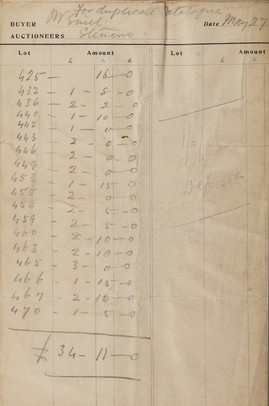 For duplicate Catalogue
BUYER
Date May 27
AUCTIONEERS Stevens
Lot Amount Lot Amount
£ s. d. £ s. d.
425 — 18 — 0
432 — 1 — 8 — 0
436 — 2 — 2 — 0
440 — 1 — 10 — 0
442 — 1 — 0 — 0
443 — 2 — 0 — 0
446 — 2 — 0 — 0
449 — 2 — 0 — 0
453 — 1 — 15 — 0
455 — 2 — 0 — 0
458 — 2 — 5 — 0
459 — 2 — 5 — 0
460 — 2 — 10 — 0
463 — 2 — 10 — 0
465 — 3 — 0 — 0
466 — 1 — 15 — 0
467 — 2 — 10 — 0
470 — 1 — 5 — 0
£ 34 — 11 — 0